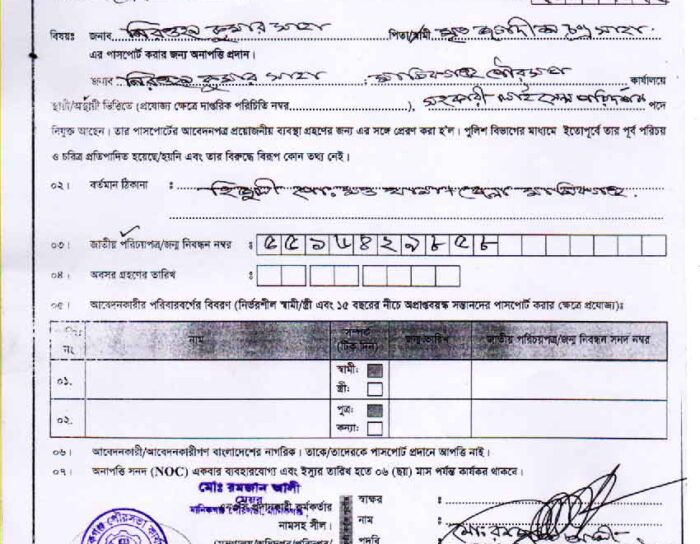 বিষয়ঃ জনাব নিরঞ্জন কুমার সাহা পিতা/স্বামী মৃত জগদীশ চন্দ্র সাহা
এর পাসপোর্ট করার জন্য অনাপত্তি প্রদান।
জনাব নিরঞ্জন কুমার সাহা, মানিকগঞ্জ পৌরসভা কার্যালয়ে
স্থায়ী/অস্থায়ী ভিত্তিতে (প্রযোজ্য ক্ষেত্রে দাপ্তরিক পরিচিতি নম্বর ), সহকারী লাইসেন্স পরিদর্শক পদে
নিযুক্ত আছেন। তার পাসপোর্টের আবেদনপত্র প্রয়োজনীয় ব্যবস্থা গ্রহণের জন্য এর সঙ্গে প্রেরণ করা হ'ল। পুলিশ বিভাগের মাধ্যমে ইতোপূর্বে তার পূর্ব পরিচয়
ও চরিত্র প্রতিপাদিত হয়েছে/হয়নি এবং তার বিরুদ্ধে বিরূপ কোন তথ্য নেই।
০২। বর্তমান ঠিকানা ঃ মানিকগঞ্জ
০৩। জাতীয় পরিচয়পত্র/জন্ম নিবন্ধন নম্বর ঃ ৫৫১৬৪২৯৮৫৮
০৪। অবসর গ্রহণের তারিখ ঃ
০৫। আবেদনকারীর পরিবারবর্গের বিবরণ (নির্ভরশীল স্বামী/স্ত্রী এবং ১৫ বছরের নীচে অপ্রাপ্তবয়স্ক সন্তানদের পাসপোর্ট করার ক্ষেত্রে প্রযোজ্য)ঃ
নং নাম সম্পর্ক (টিক দিন) জন্ম তারিখ জাতীয় পরিচয়পত্র/জন্ম নিবন্ধন সনদ নম্বর
০১। স্বামী:
স্ত্রী:
০২। পুত্র:
কন্যা:
০৬। আবেদনকারী/আবেদনকারীগণ বাংলাদেশের নাগরিক। তাকে/তাদেরকে পাসপোর্ট প্রদানে আপত্তি নাই।
০৭। অনাপত্তি সনদ (NOC) একবার ব্যবহারযোগ্য এবং ইস্যুর তারিখ হতে ০৬ (ছয়) মাস পর্যন্ত কার্যকর থাকবে।
মোঃ রমজান আলী
মেয়র
মানিকগঞ্জ পৌরসভা
স্বাক্ষর :
কর্মকর্তার
নামসহ সীল। নাম :
পদবি